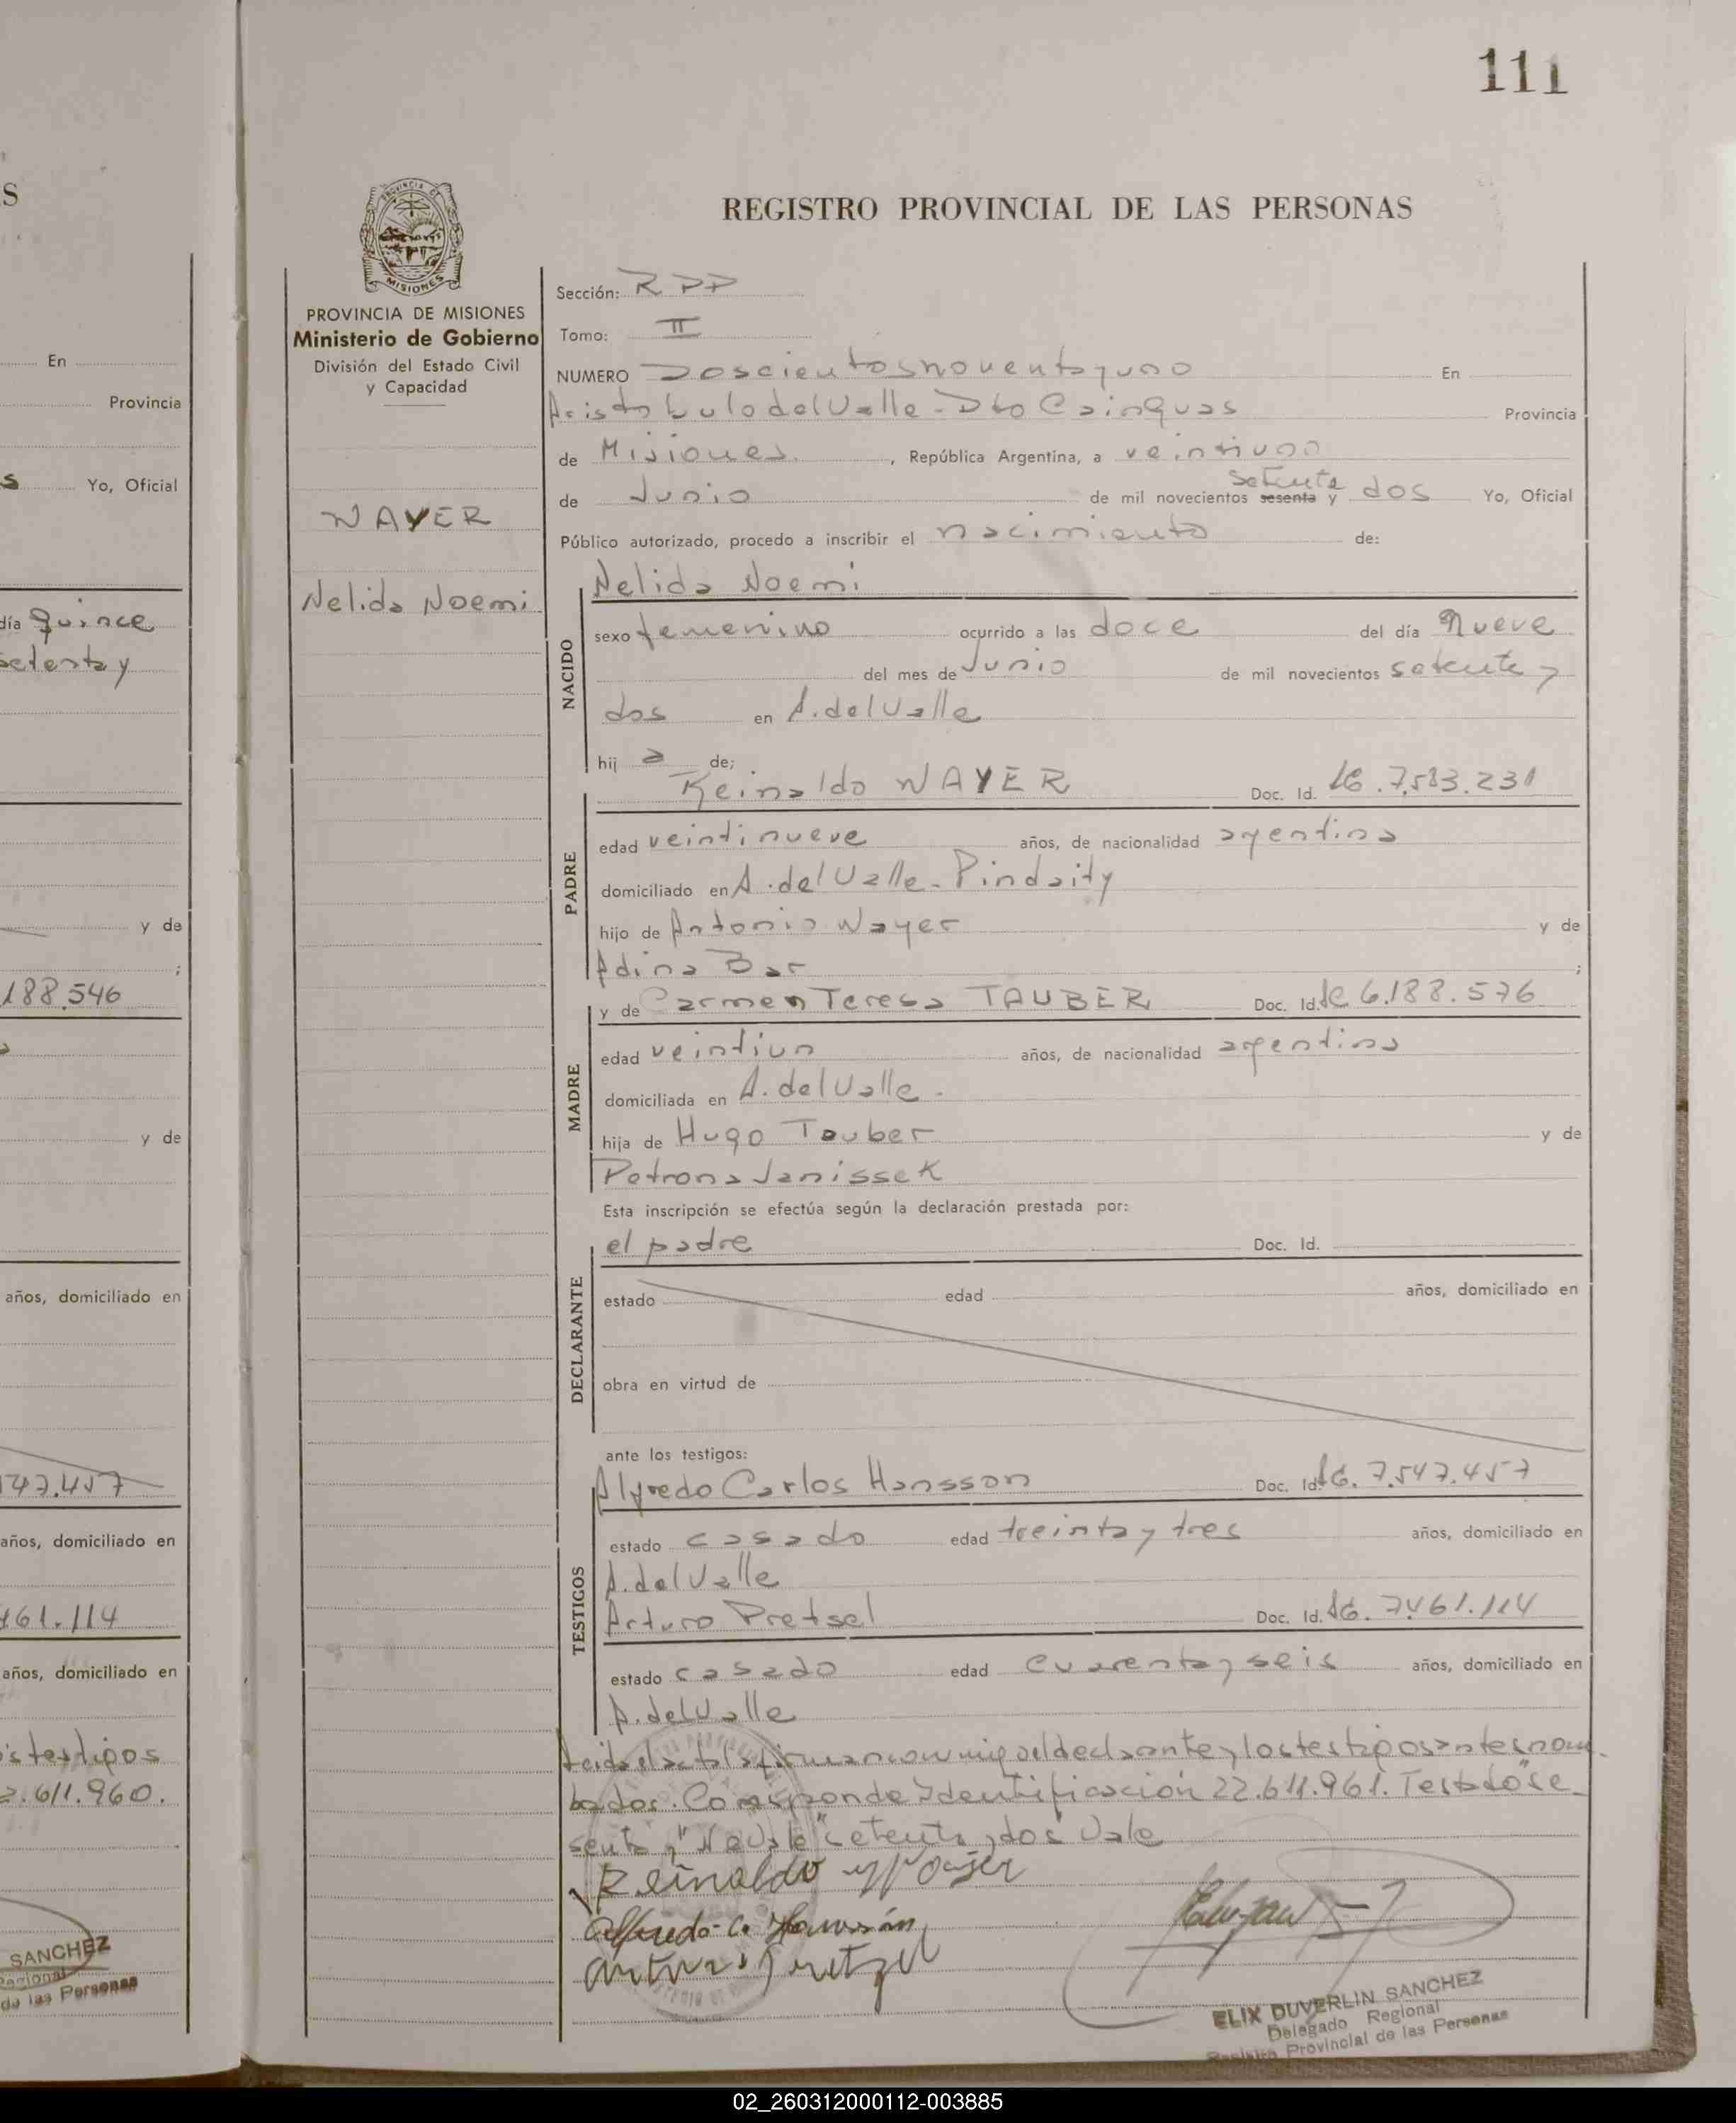 111
S
En
Provincia
s Yo, Oficial
día quince
setenta y
y de
;
188.546
y de
años, domiciliado en
747.457
años, domiciliado en
461.114
años, domiciliado en
testigos
2.611.960.
SANCHEZ
Regional
de las Personas
PROVINCIA DE MISIONES
Ministerio de Gobierno
División del Estado Civil
y Capacidad
WAYER
Nelida Noemi
REGISTRO PROVINCIAL DE LAS PERSONAS
Sección: RPP
Tomo: II
NUMERO Doscientos noventa y uno En
Aristobulo del Valle - Dto Cainguas Provincia
de Misiones. , República Argentina, a veintiuno
setenta
de Junio de mil novecientos sesenta y dos Yo, Oficial
Público autorizado, procedo a inscribir el nacimiento de:
NACIDO
Nelida Noemi
sexo femenino ocurrido a las doce del día nueve
del mes de Junio de mil novecientos setenta y
dos en A. del Valle
hij a de;
PADRE
Reinaldo WAYER Doc. Id. LE. 7.583.231
edad veintinueve años, de nacionalidad argentina
domiciliado en A. del Valle - Pindaity
hijo de Antonio Wayer y de
Adina Bar ;
MADRE
y de Carmen Teresa TAUBER Doc. Id. le 6.188.576
edad veintiun años, de nacionalidad argentina
domiciliada en A. del Valle.
hija de Hugo Tauber y de
Petrona Janissek
Esta inscripción se efectúa según la declaración prestada por:
DECLARANTE
el padre Doc. Id.
estado edad años, domiciliado en
obra en virtud de
ante los testigos:
TESTIGOS
Alfredo Carlos Hansson Doc. Id. LE. 7.547.457
estado casado edad treinta y tres años, domiciliado en
A. del Valle
Arturo Pretsel Doc. Id. LE. 7.461.114
estado casado edad cuarenta y seis años, domiciliado en
A. del Valle
Leida el acta la firman conmigo el declarante y los testigos antes nom
brados. Corresponde Identificación 22.611.961. Testado "se
senta y" No vale "setenta y dos" Vale
Reinaldo Wayer
Alfredo C. Hansson
Arturo Pretzel
ELIX DUVERLIN SANCHEZ
Delegado Regional
Registro Provincial de las Personas
02_260312000112-003885